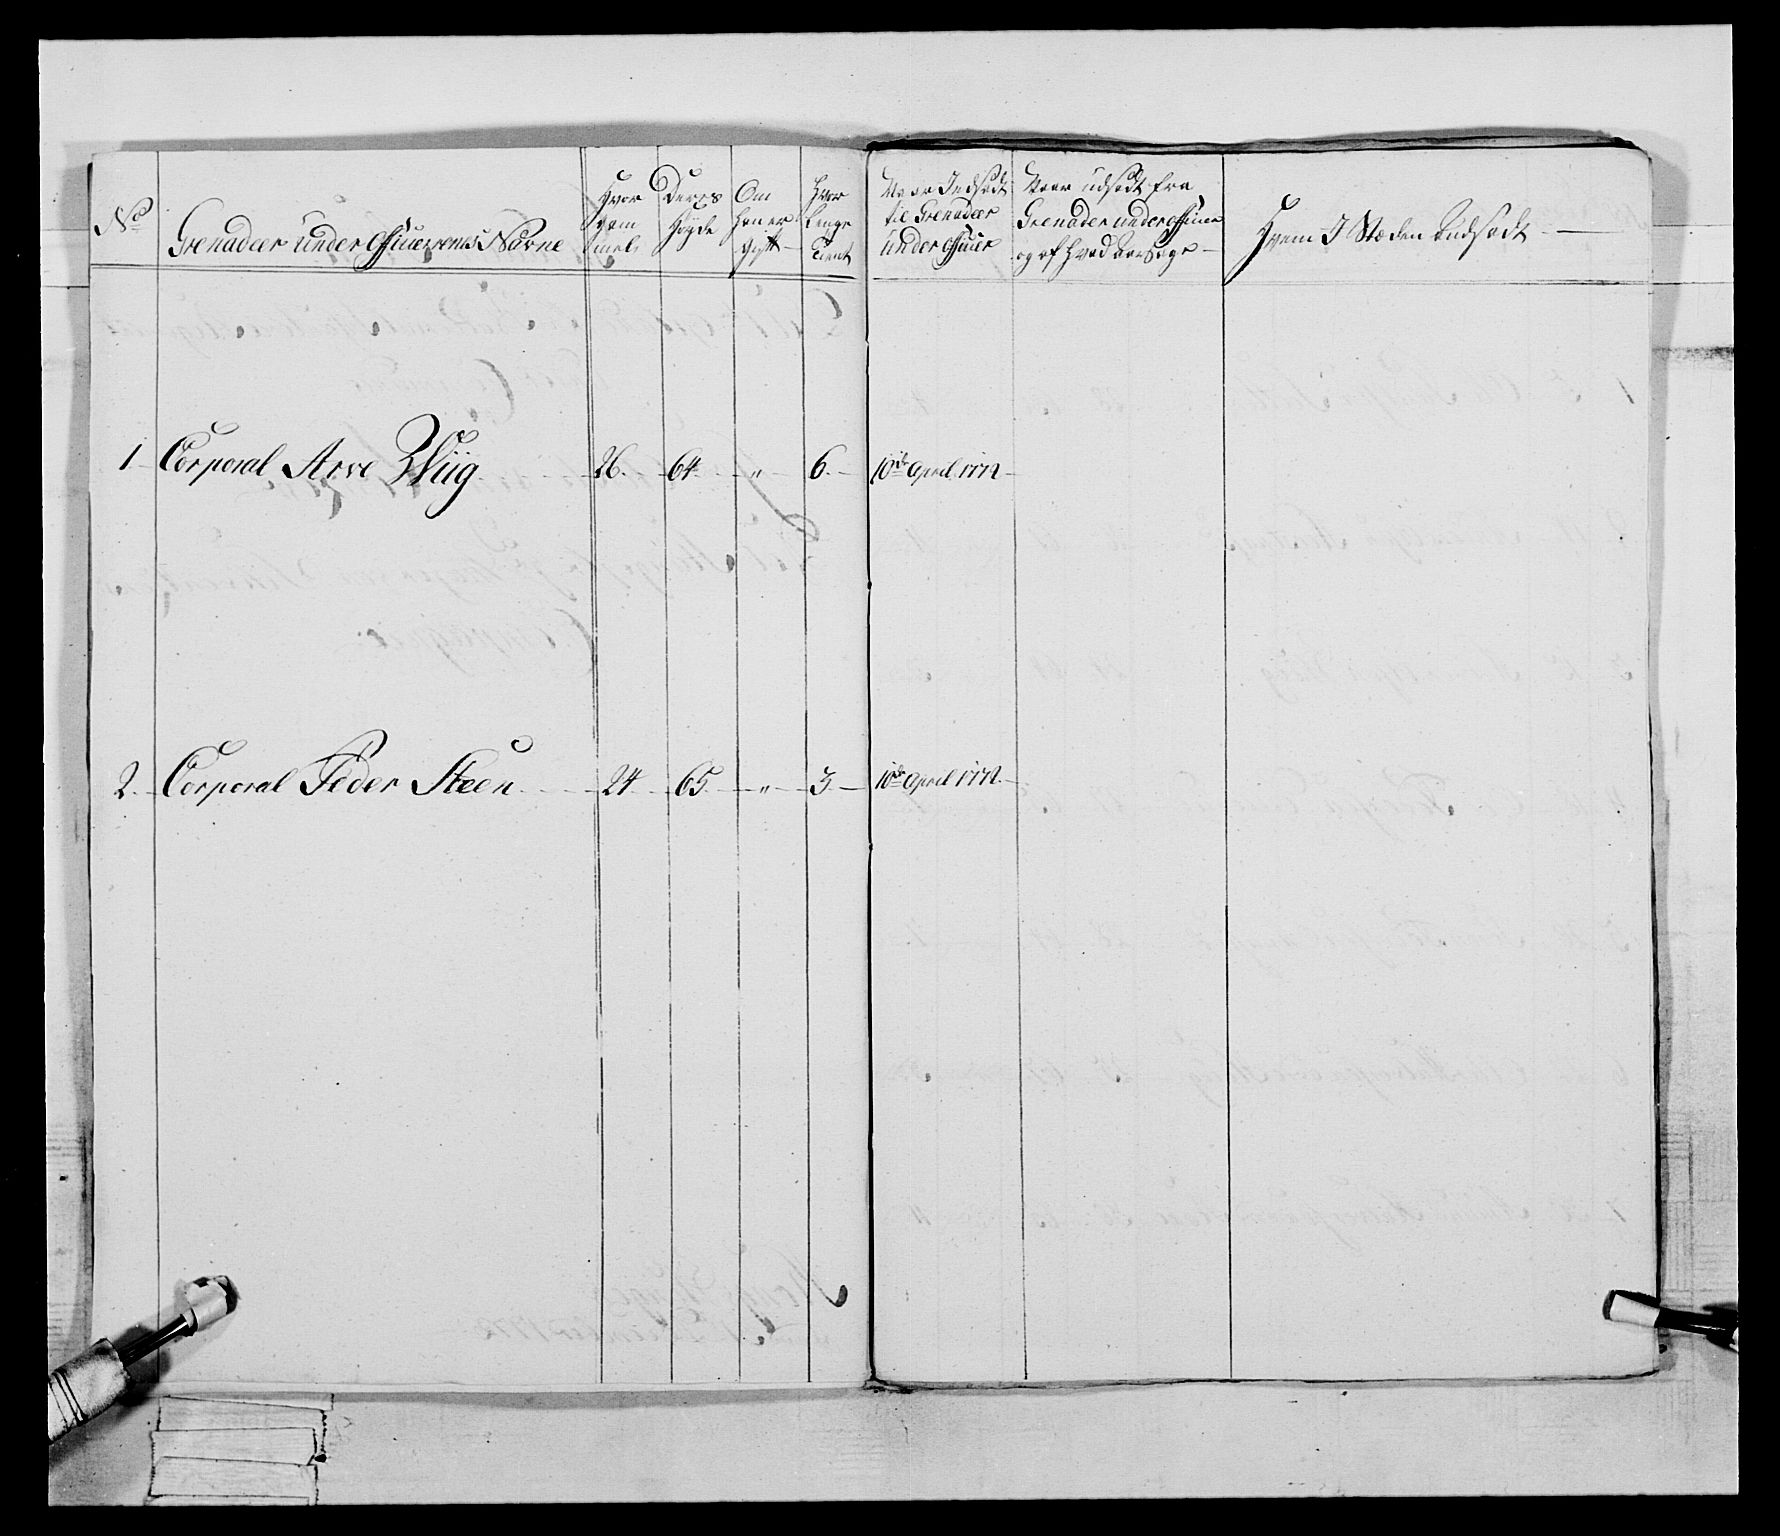 No
Grenadeer Under Officerernes Navne
Hvor
gam
mel
Deres
Høyde
Om
Han er
gift
Hvor
lenge
Tient
Naar Indsadt
til Grenadeer
Under Officeer
Naar udsadt fra
Grenadeer under Officeer
og af Hvad Aarsage
Hvem I Stæden Indsadt
1 Corporal Arve Wiig 26. 64 " 6. 10de April 1772
2. Corporal Peder Steen 24 65. " 3. 10de April 1772.